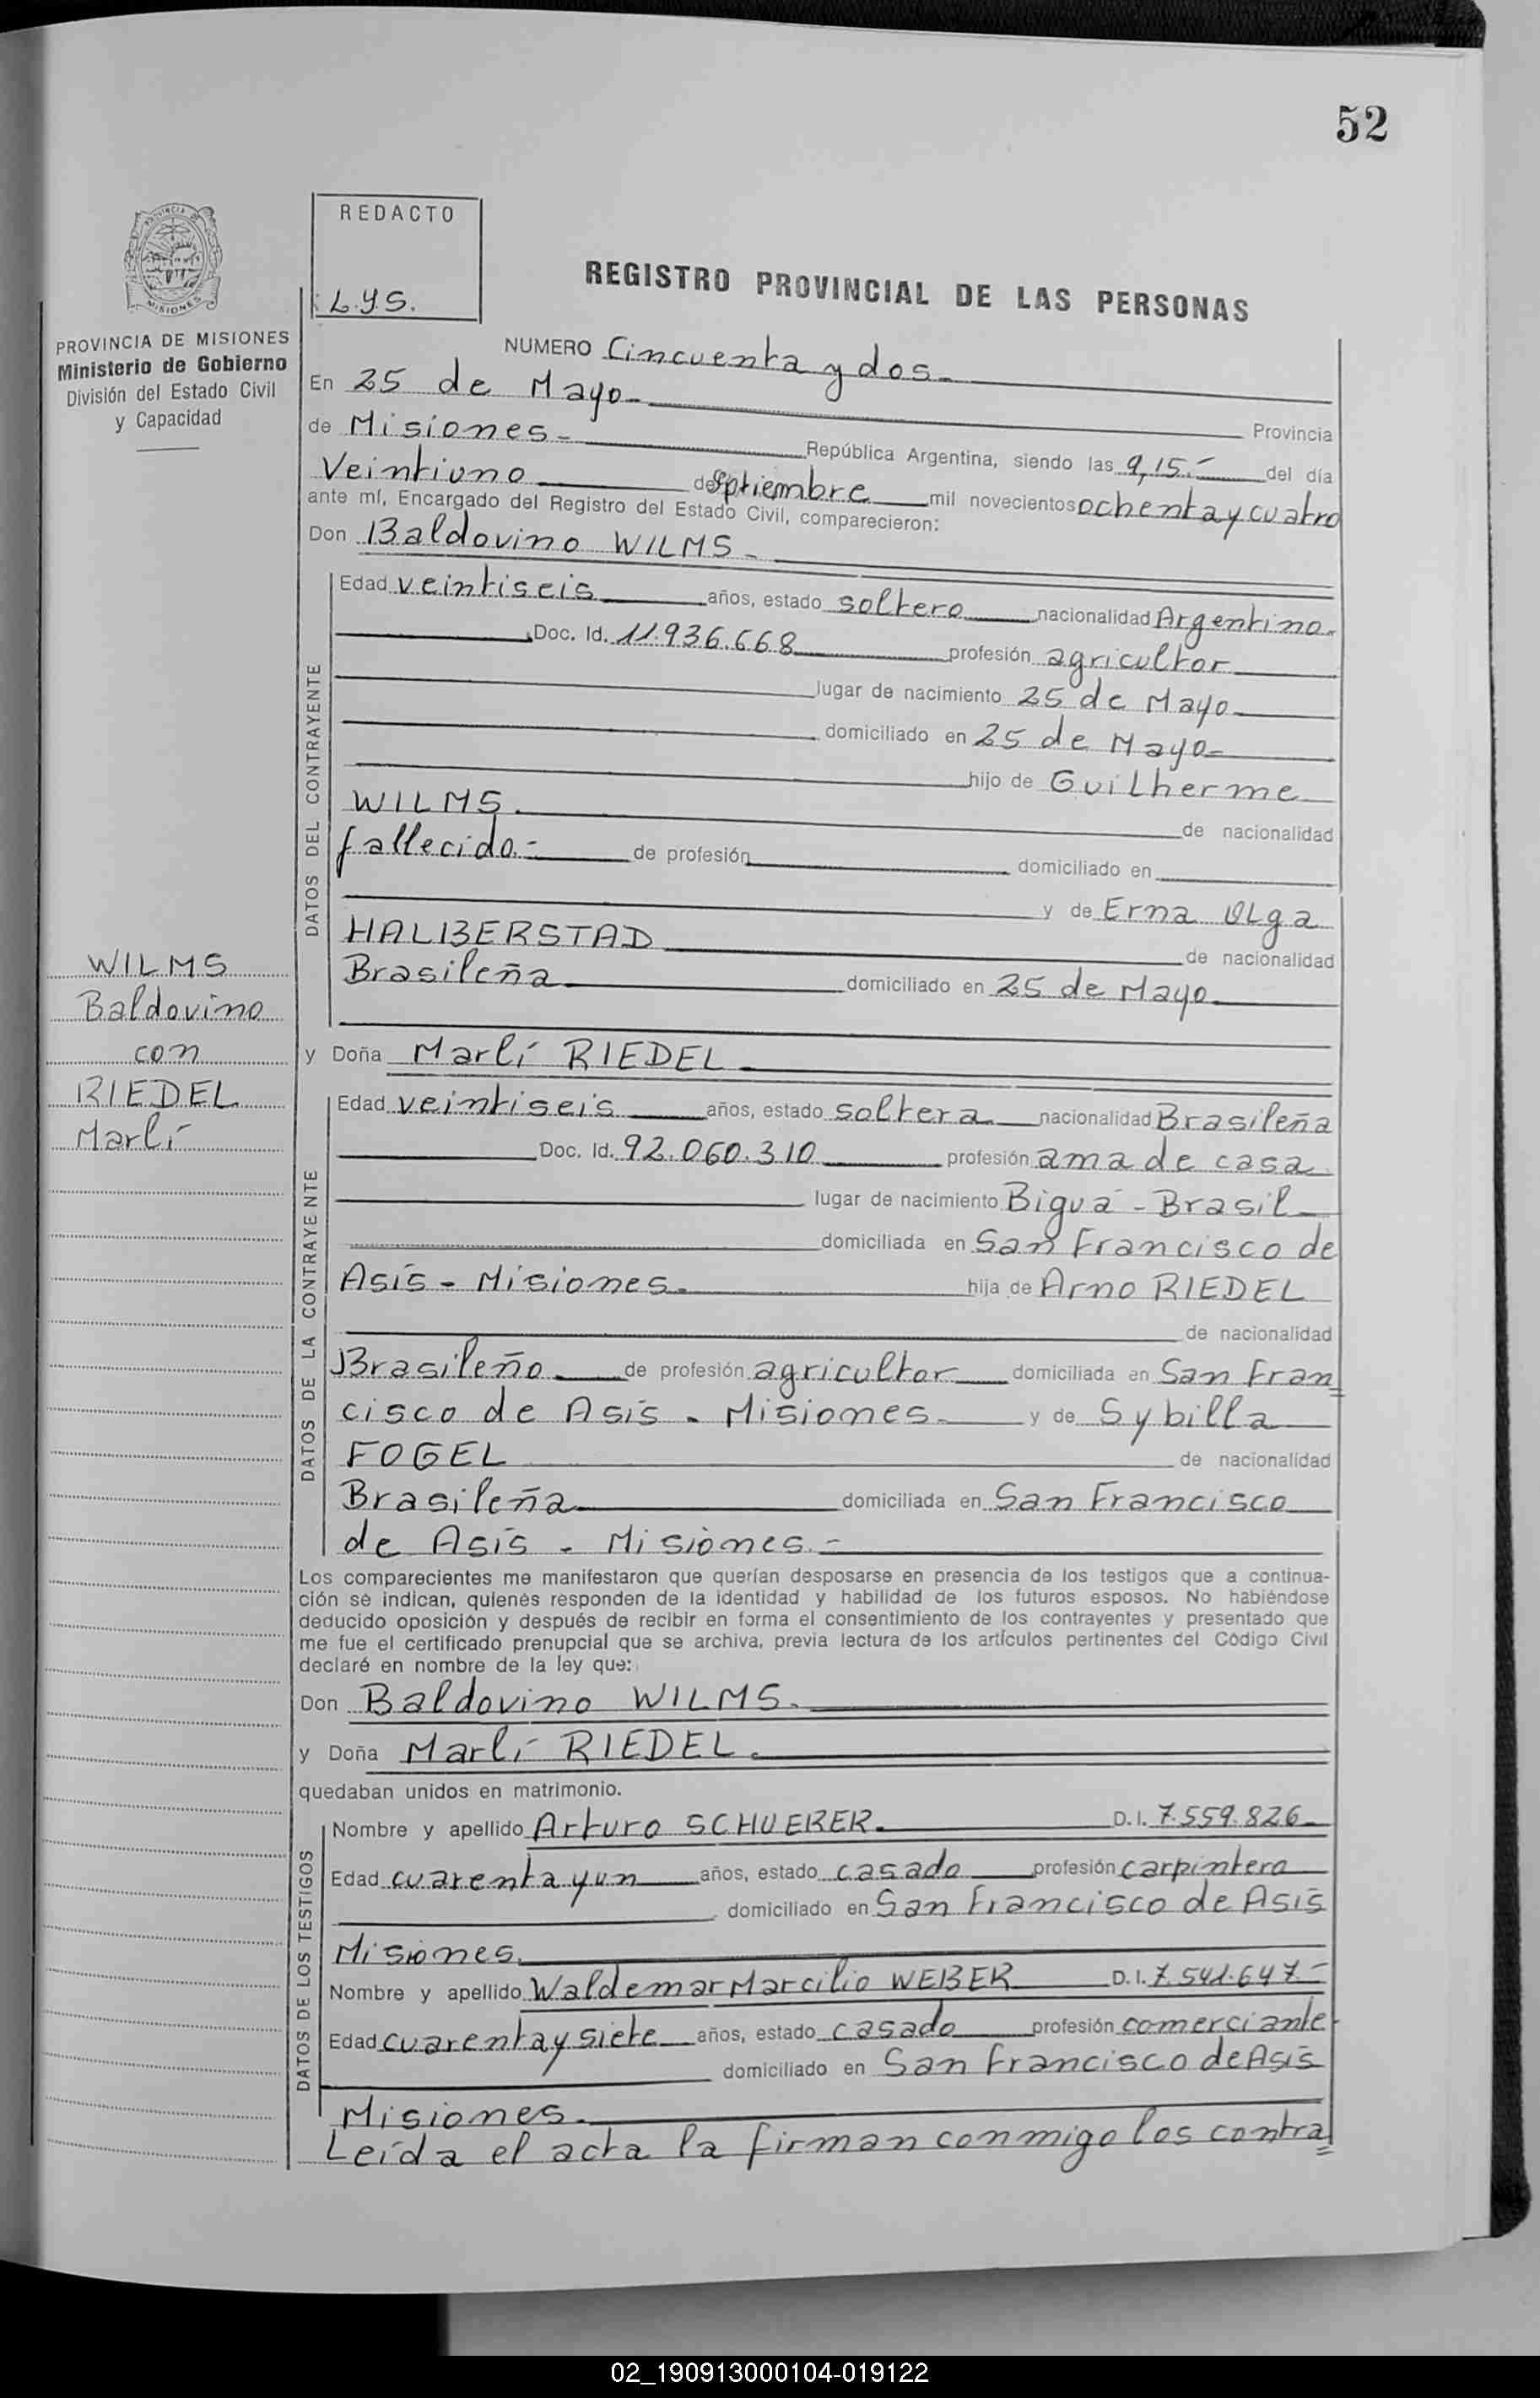 52
REDACTO
L.y.S.
PROVINCIA DE
MISIONES
REGISTRO PROVINCIAL DE LAS PERSONAS
PROVINCIA DE MISIONES
Ministerio de Gobierno
División del Estado Civil
y Capacidad
NUMERO Cincuenta y dos.-
En 25 de Mayo.-
Provincia
de Misiones.- República Argentina, siendo las 9,15.- del día
Veintiuno de Septiembre mil novecientos ochenta y cuatro
ante mí, Encargado del Registro del Estado Civil, comparecieron:
Don Baldovino WILMS.-
DATOS DEL CONTRAYENTE
Edad veintiseis años, estado soltero nacionalidad Argentino.
Doc. Id. 11.936.668 profesión agricultor
lugar de nacimiento 25 de Mayo
domiciliado en 25 de Mayo-
hijo de Guilherme
WILMS. de nacionalidad
fallecido.- de profesión domiciliado en
y de Erna Olga
HALBERSTAD de nacionalidad
Brasileña domiciliado en 25 de Mayo.
WILMS
Baldovino
con
RIEDEL
Marlí
y Doña Marlí RIEDEL.
DATOS DE LA CONTRAYENTE
Edad veintiseis años, estado soltera nacionalidad Brasileña
Doc. Id. 92.060.310 profesión ama de casa
lugar de nacimiento Biguá - Brasil
domiciliada en San Francisco de
Asís - Misiones. hija de Arno RIEDEL
de nacionalidad
Brasileño. de profesión agricultor domiciliada en San Fran=
cisco de Asís - Misiones. y de Sybilla
FOGEL de nacionalidad
Brasileña domiciliada en San Francisco
de Asís - Misiones.-
Los comparecientes me manifestaron que querían desposarse en presencia de los testigos que a continua-
ción se indican, quienes responden de la identidad y habilidad de los futuros esposos. No habiéndose
deducido oposición y después de recibir en forma el consentimiento de los contrayentes y presentado que
me fue el certificado prenupcial que se archiva, previa lectura de los artículos pertinentes del Código Civil
declaré en nombre de la ley que:
Don Baldovino WILMS.
y Doña Marlí RIEDEL.
quedaban unidos en matrimonio.
DATOS DE LOS TESTIGOS
Nombre y apellido Arturo SCHUERER. D.I. 7.559.826.
Edad cuarenta y un años, estado casado profesión carpintero
domiciliado en San Francisco de Asís
Misiones.
Nombre y apellido Waldemar Marcilio WEBER D.I. 7.541.647.-
Edad cuarenta y siete años, estado casado profesión comerciante.
domiciliado en San Francisco de Asís
Misiones.
Leída el acta la firman conmigo los contra=
02_190913000104-019122